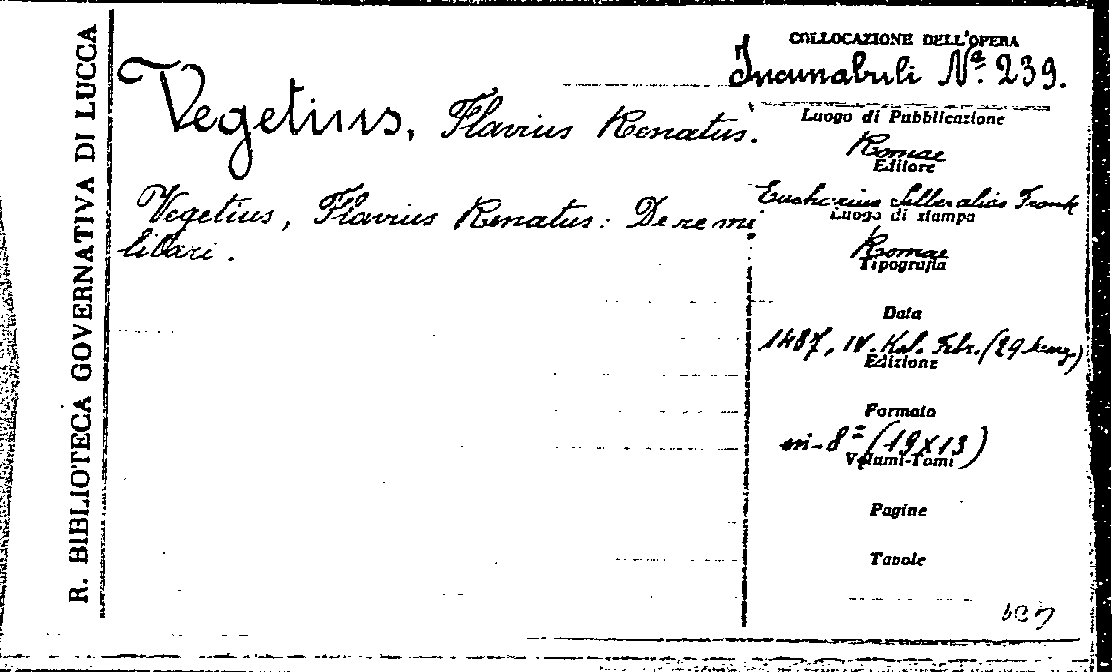 R. BIBLIOTECA GOVERNATIVA DI LUCCA
Vegetius, Flavius Renatus.
Vegetius, Flavius Renatus: De re mi
litari.
COLLOCAZIONE DELL'OPERA
Incunabuli Nº. 239.
Luogo di Pubblicazione
Romae
Editore
Eucharius Silber alias Frank
Luogo di stampa
Romae
Tipografia
Data
1487, IV. Kal. Febr. (29
Edizione
Formato
in-8º (19x13)
Volumi-Tomi
Pagine
Tavole